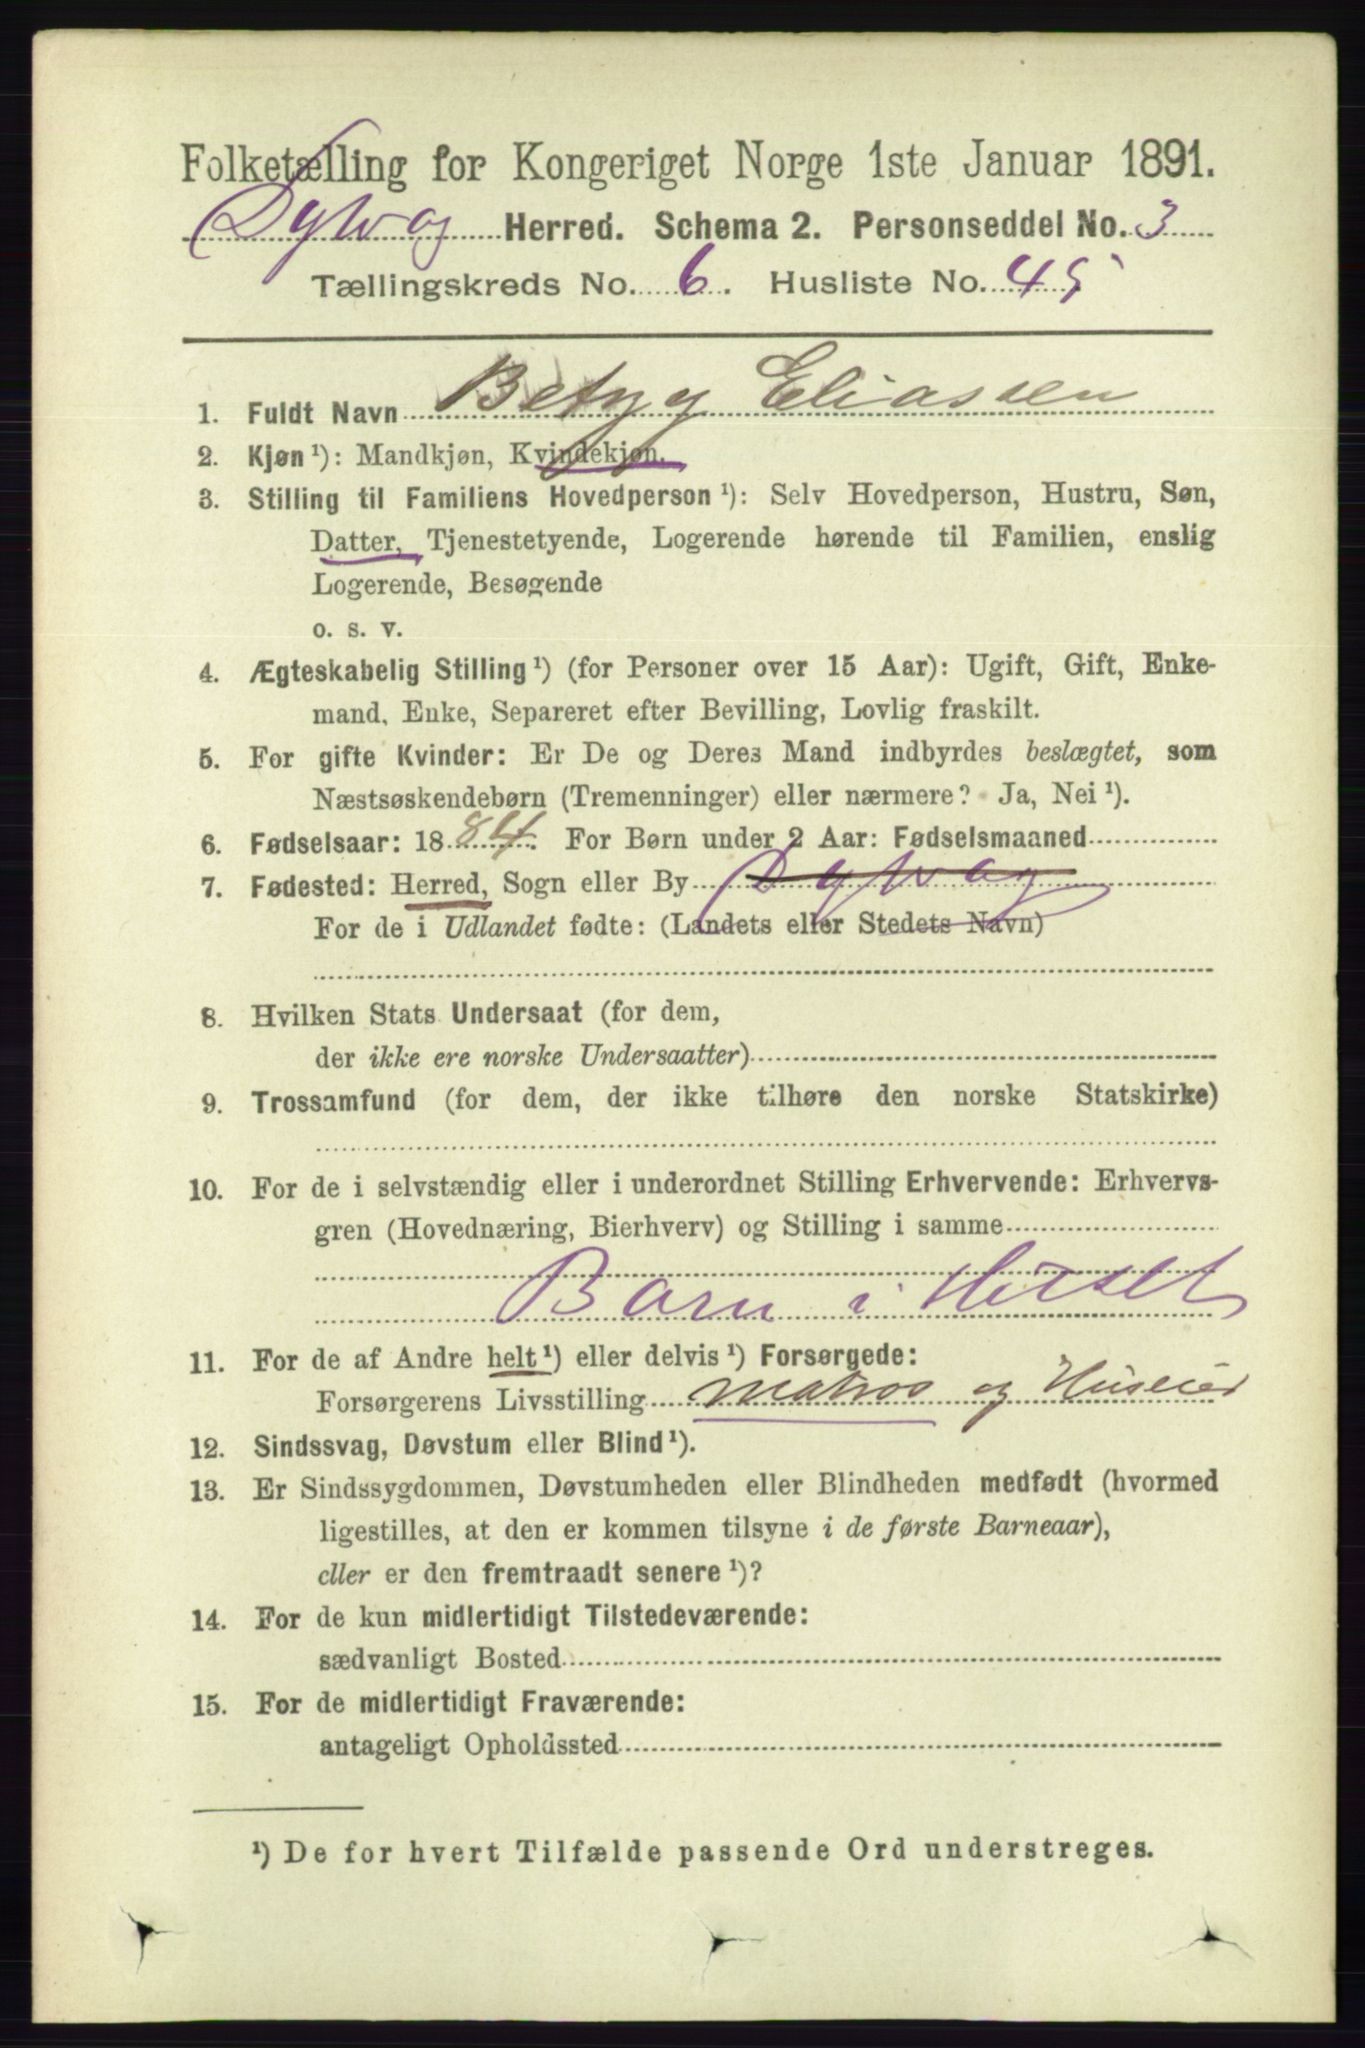 Folketælling for Kongeriget Norge 1ste Januar 1891.
Dybvag Herred. Schema 2. Personseddel No. 3
Tællingskreds No. 6. Husliste No. 45
1. Fuldt Navn Betzy Eliassen
2. Kjøn ¹): Mandkjøn, Kvindekjøn.
3. Stilling til Familiens Hovedperson ¹): Selv Hovedperson, Hustru, Søn,
Datter, Tjenestetyende, Logerende hørende til Familien, enslig
Logerende, Besøgende
o. s. v.
4. Ægteskabelig Stilling ¹) (for Personer over 15 Aar): Ugift, Gift, Enke-
mand, Enke, Separeret efter Bevilling, Lovlig fraskilt.
5. For gifte Kvinder: Er De og Deres Mand indbyrdes beslægtet, som
Næstsøskendebørn (Tremenninger) eller nærmere? Ja, Nei ¹).
6. Fødselsaar: 1884. For Børn under 2 Aar: Fødselsmaaned
7. Fødested: Herred, Sogn eller By Dybvag
For de i Udlandet fødte: (Landets eller Stedets Navn)
8. Hvilken Stats Undersaat (for dem,
der ikke ere norske Undersaatter)
9. Trossamfund (for dem, der ikke tilhøre den norske Statskirke)
10. For de i selvstændig eller i underordnet Stilling Erhvervende: Erhvervs-
gren (Hovednæring, Bierhverv) og Stilling i samme
Barn i Huset
11. For de af Andre helt ¹) eller delvis ¹) Forsørgede:
Forsørgerens Livsstilling Matros og Huseier
12. Sindssvag, Døvstum eller Blind ¹).
13. Er Sindssygdommen, Døvstumheden eller Blindheden medfødt (hvormed
ligestilles, at den er kommen tilsyne i de første Barneaar),
eller er den fremtraadt senere ¹)?
14. For de kun midlertidigt Tilstedeværende:
sædvanligt Bosted
15. For de midlertidigt Fraværende:
antageligt Opholdssted
¹) De for hvert Tilfælde passende Ord understreges.